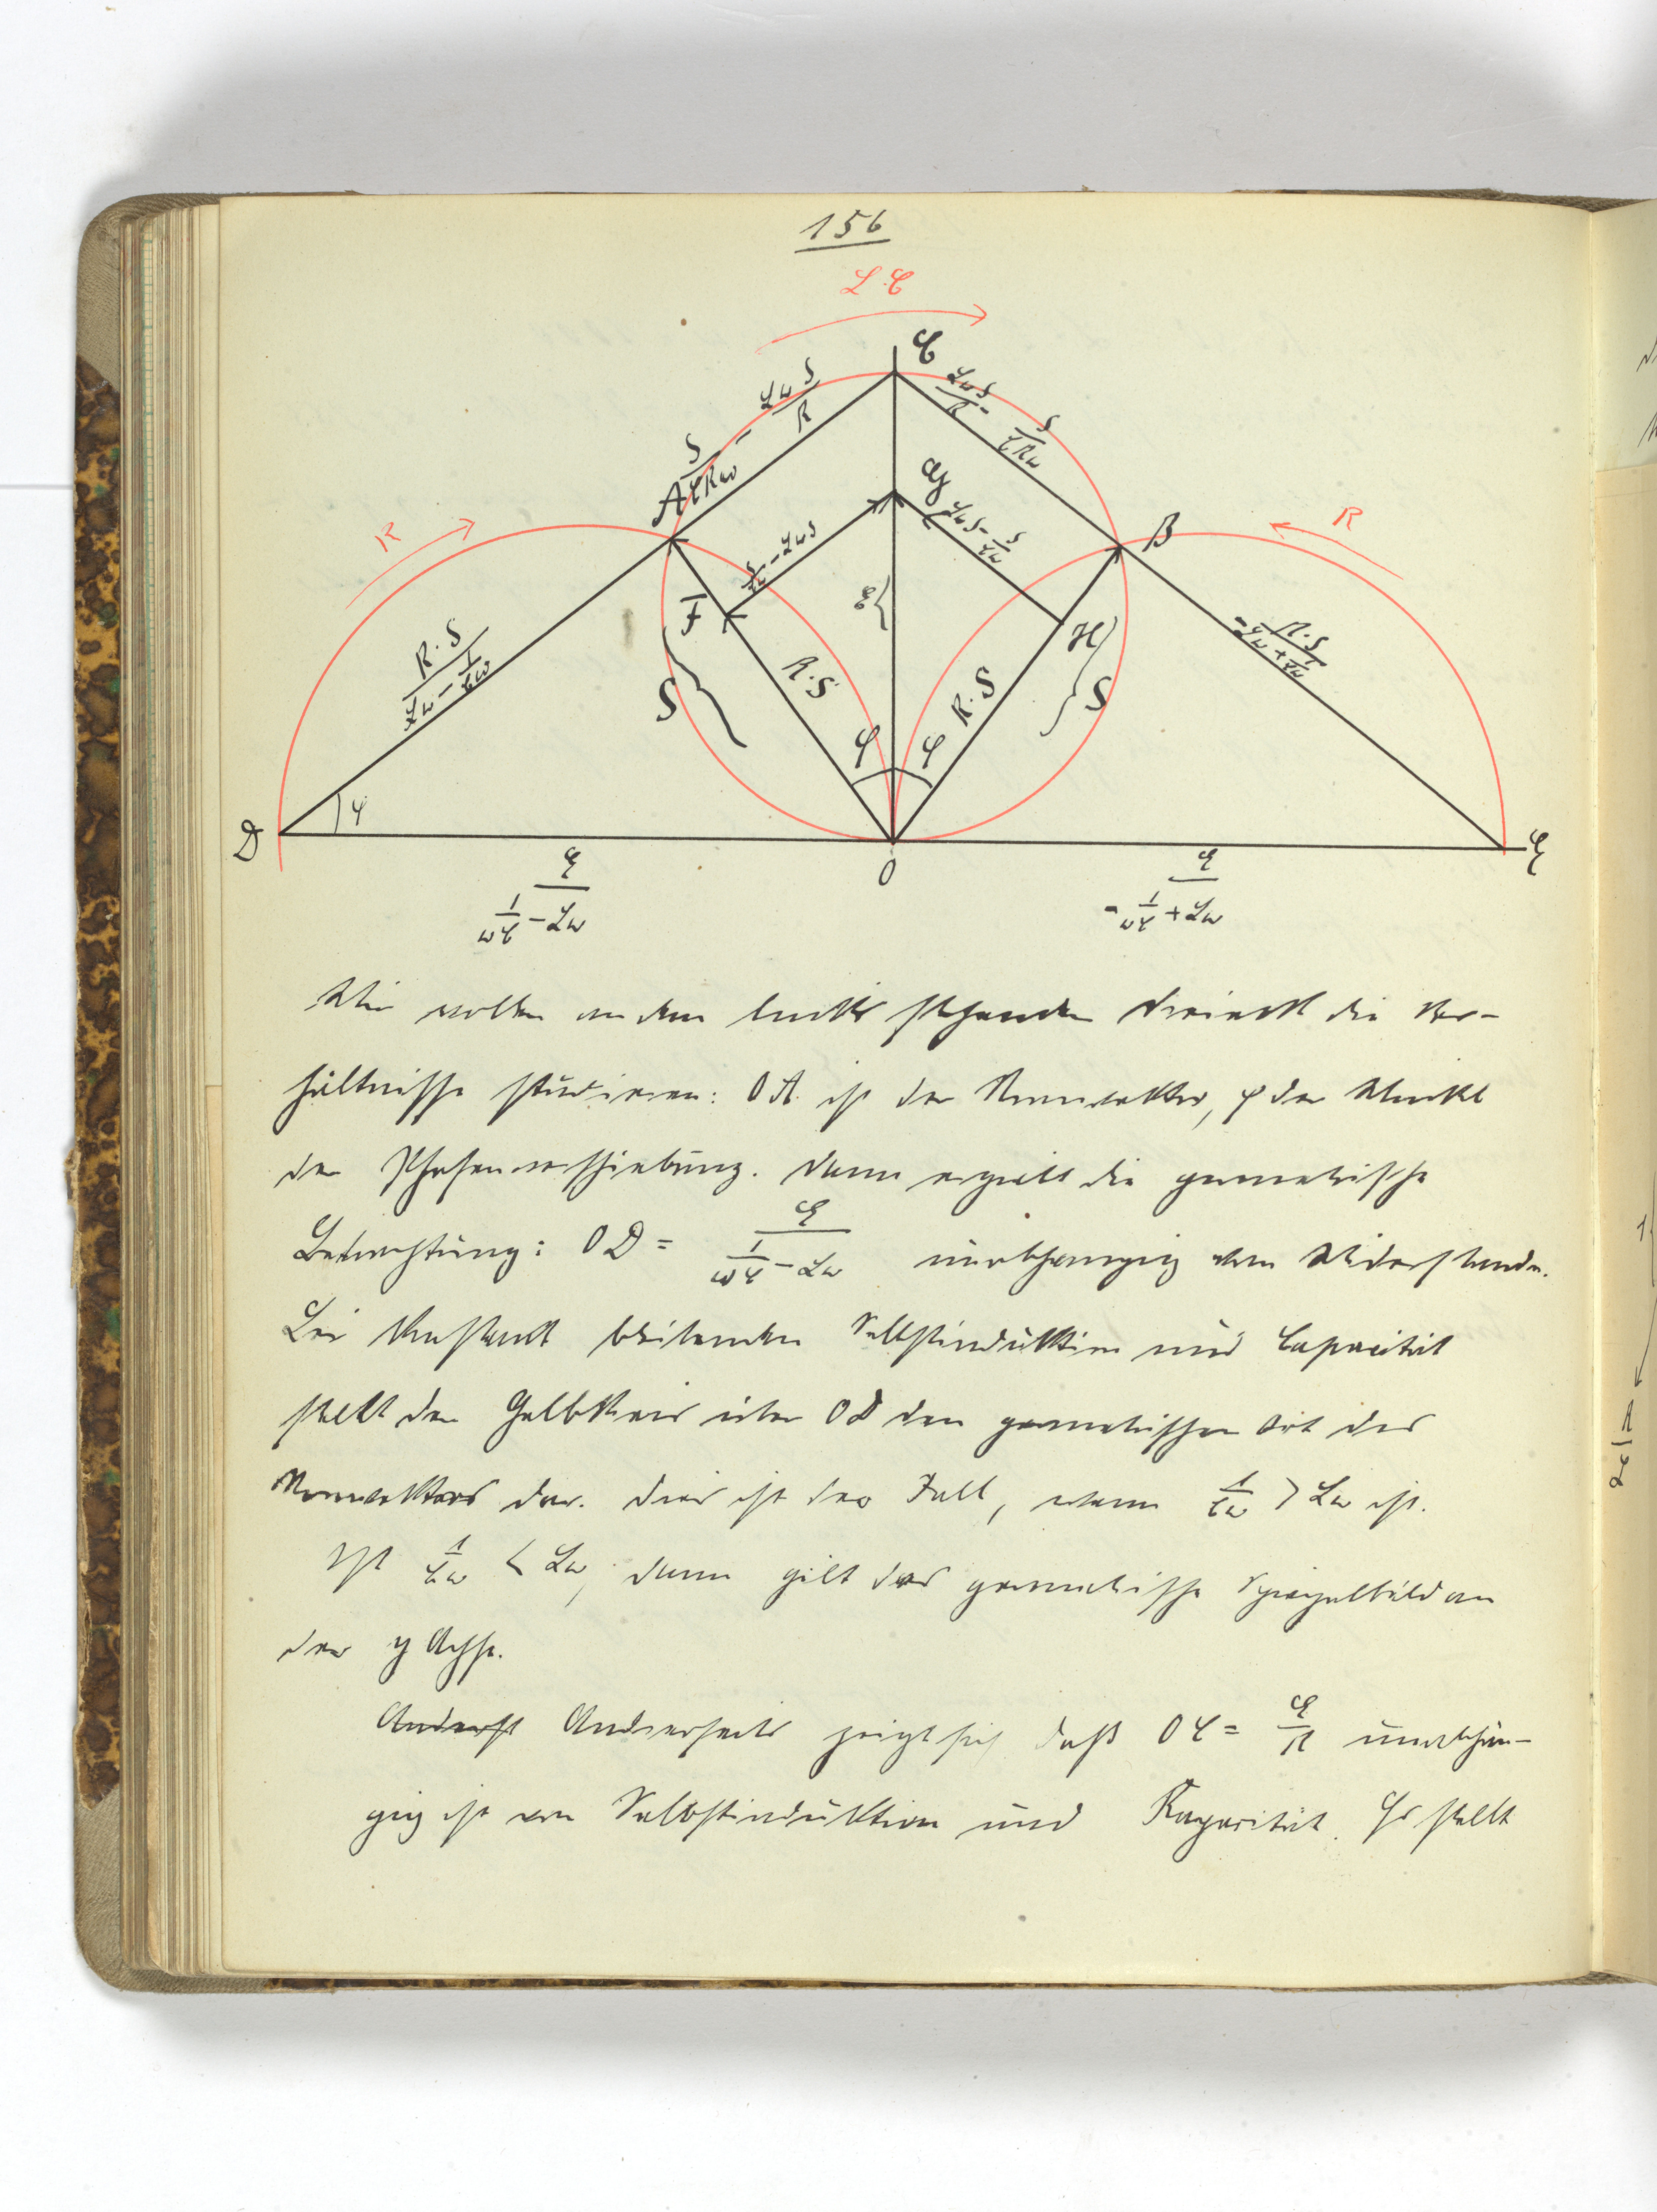 156
L C
C
S/(CRω) - LωS/R
LωS/R - S/(CRω)
A
G
B
R
R
S/(Cω) - LωS
LωS - S/(Cω)
F
E
H
R·S/(Lω - 1/(Cω))
R·S/(-Lω + 1/(Cω))
S
R·S
R·S
S
φ
φ
φ
D
O
E
E/(1/(ωC) - Lω)
E/(-1/(ωC) + Lω)
Wir wollen an dem links stehenden Dreieck die Ver-
hältnisse studieren: OA ist der Stromvektor, φ der Winkel
der Phasenverschiebung. Dann ergiebt die geometrische
Betrachtung: OD = E/(1/(ωC) - Lω) unabhängig vom Widerstande.
Bei konstant bleibender Selbstinduktion und Capacität
stellt der Halbkreis über OD den geometrischen Ort des
Stromvektors dar. Dies ist der Fall, wenn 1/(Cω) > Lω ist.
Ist 1/(Cω) < Lω, dann gilt das geometrische Spiegelbild an
der y Achse.
Anderst Anderseits zeigt sich daß OC = E/R unabhän-
gig ist von Selbstinduktion und Kapacität. Es stellt